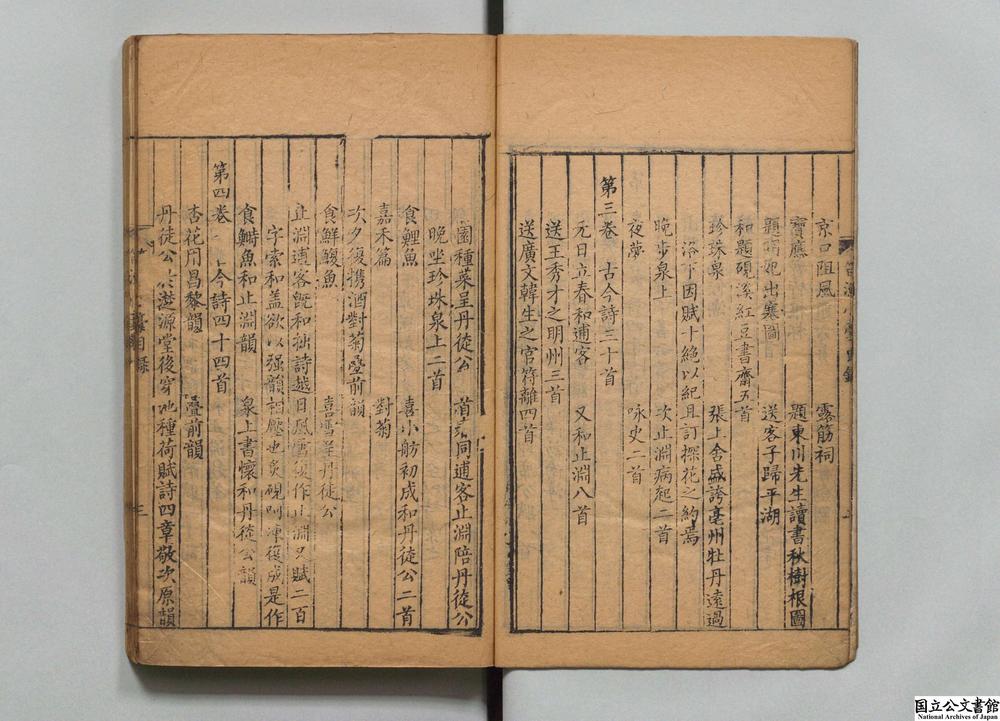 京口阻風 露筋祠
寶應 題東川先生讀書秋樹根圖
題明妃出塞圖 送客子歸平湖
和題硯溪紅豆書齋五首
珍珠泉 張上舍盛誇亳州牡丹遠過
洛下因賦十絕以紀且訂探花之約焉
晚步泉上 次止淵病起二首
夜夢 咏史二首
第三卷 古今詩三十首
元日立春和逋客 又和止淵八首
送王秀才之明州三首
送廣文韓生之官符離四首
園種菜呈丹徒公 同逋客止淵陪丹徒公
晚坐珍珠泉上二首
食鯉魚 喜小舫初成和丹徒公二首
嘉禾篇 對菊
次夕復携酒對菊疊前韻
食鮮鰒魚 喜雪呈丹徒公
止淵逋客旣和拙詩越日風雪復作止淵又賦二百
字索和盖欲以强韻相壓也炙硯呵凍復成是作
食鰣魚和止淵韻 泉上書懷和丹徒公韻
第四卷 今詩四十四首
杏花用昌黎韻 疊前韻
丹徒公於 源堂後穿地種荷賦詩四章敬次原韻
目錄 三
国立公文書館
National Archives of Japan